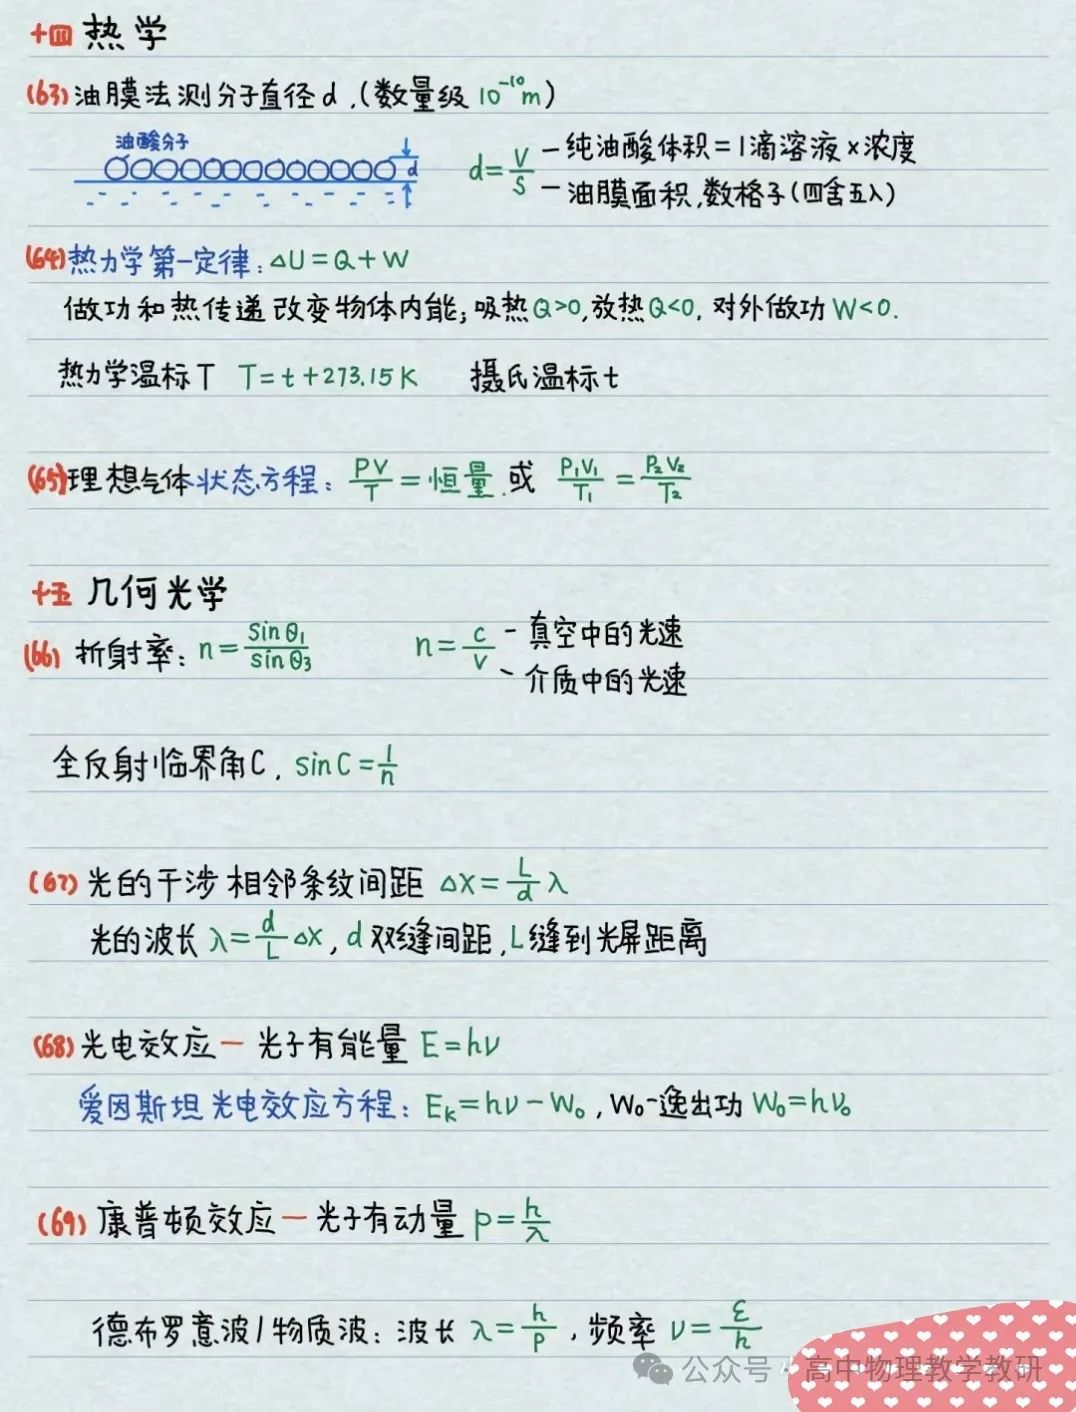 十四 热学
(63) 油膜法测分子直径d.(数量级 10⁻¹⁰m)
油酸分子
d
d=V/S －纯油酸体积=1滴溶液×浓度
－油膜面积,数格子(四舍五入)
(64) 热力学第一定律: △U=Q+W
做功和热传递改变物体内能; 吸热Q>0,放热Q<0, 对外做功W<0.
热力学温标T T=t+273.15K 摄氏温标t
(65) 理想气体状态方程: PV/T=恒量.或 P₁V₁/T₁=P₂V₂/T₂
十五 几何光学
(66) 折射率: n=sinθ₁/sinθ₃ n=c/v －真空中的光速
－介质中的光速
全反射临界角C, sinC=1/n
(67) 光的干涉 相邻条纹间距 △X=L/d λ
光的波长 λ=d/L △X, d双缝间距, L缝到光屏距离
(68) 光电效应－光子有能量 E=hν
爱因斯坦光电效应方程: Eₖ=hν－W₀, W₀－逸出功 W₀=hν₀
(69) 康普顿效应－光子有动量 p=h/λ
德布罗意波/物质波: 波长 λ=h/p, 频率 ν=ε/h
公众号·高中物理教学教研